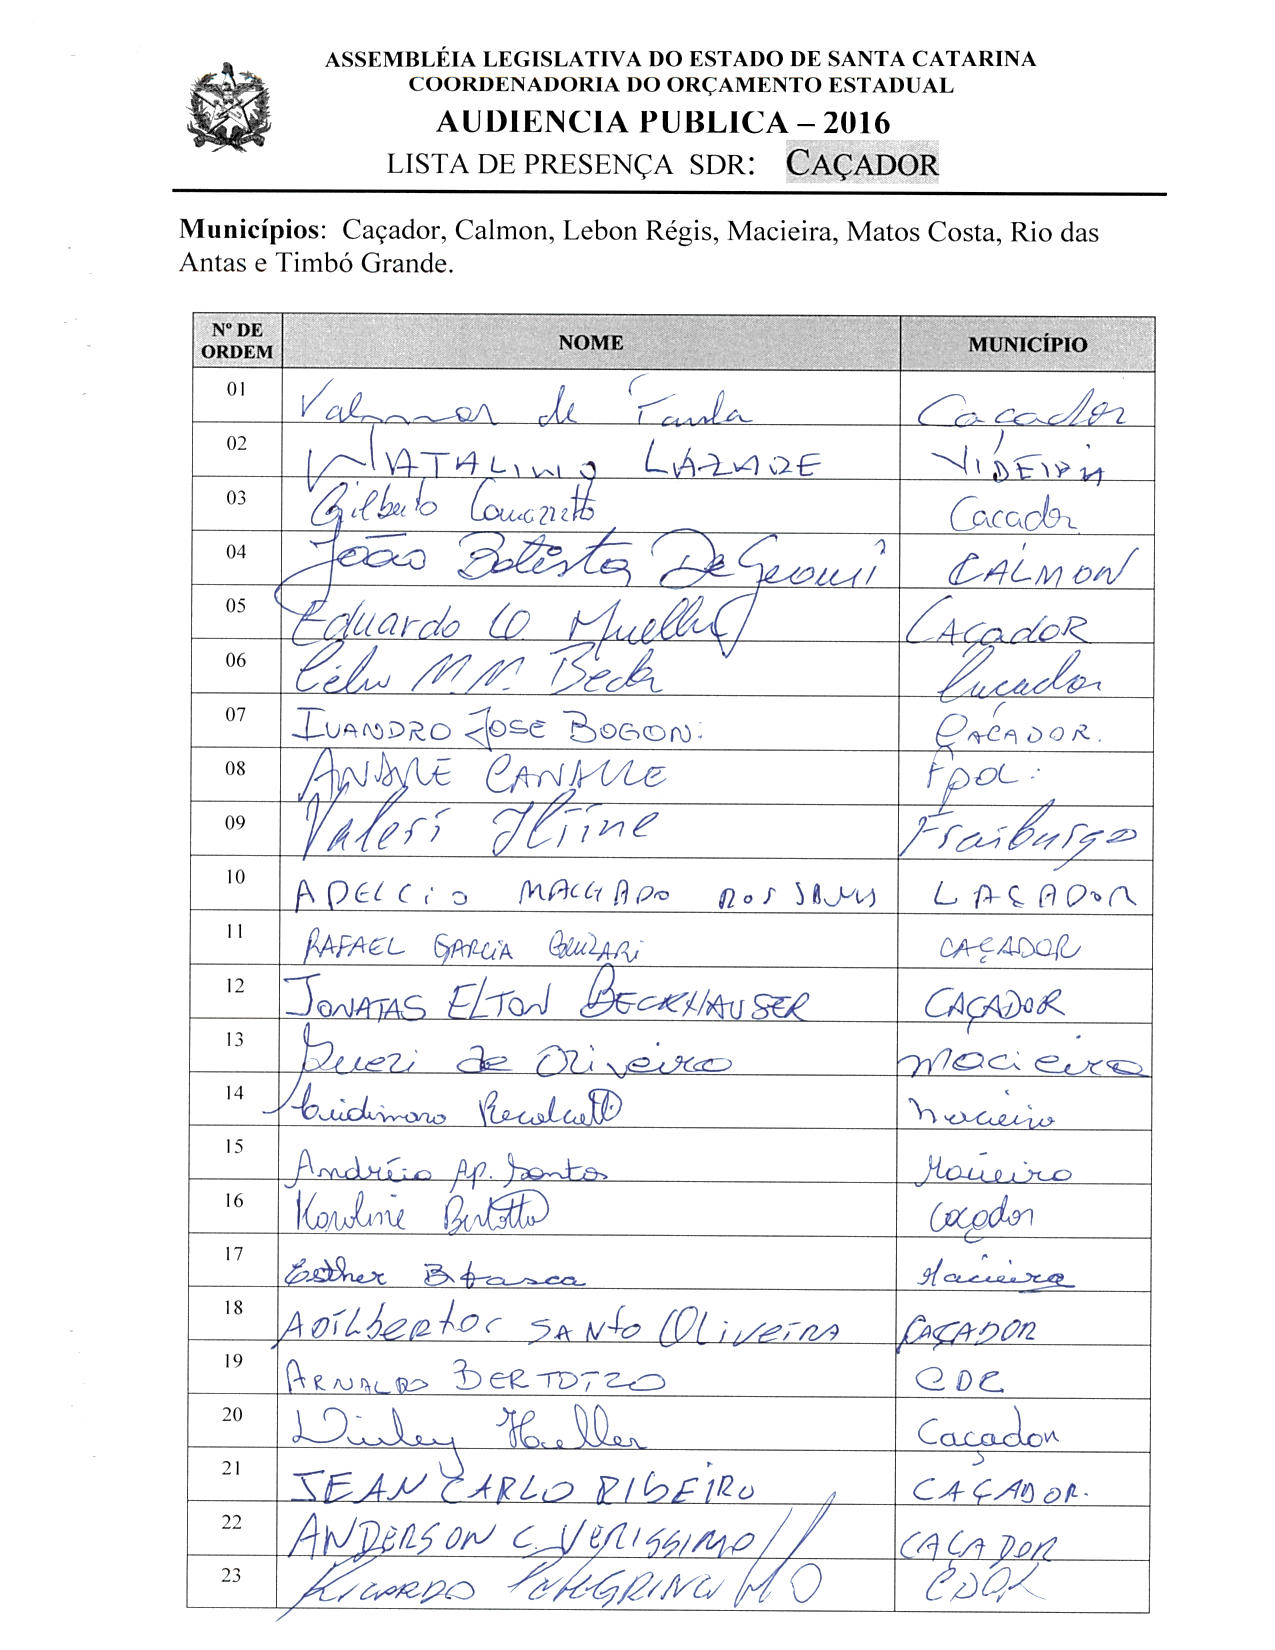 ASSEMBLÉIA LEGISLATIVA DO ESTADO DE SANTA CATARINA
COORDENADORIA DO ORÇAMENTO ESTADUAL
AUDIENCIA PUBLICA – 2016
LISTA DE PRESENÇA SDR: CAÇADOR
Municípios: Caçador, Calmon, Lebon Régis, Macieira, Matos Costa, Rio das
Antas e Timbó Grande.
Nº DE ORDEM NOME MUNICÍPIO
01 Valmor de Paula Caçador
02 NATALINO LAZARE VIDEIRA
03 Gilberto Comazzetto Cacador
04 João Batista De Geroni CALMON
05 Eduardo Mueller CAÇADOR
06 Célio M.M. Beck Caçador
07 IVANDRO JOSE BOGONI CAÇADOR.
08 ANDRE CANALLE Fpol.
09 Valeri Fraiburgo
10 ADELCIO MACHADO DOS SANTOS CAÇADOR
11 RAFAEL GARCIA CAÇADOR
12 JONATAS ELTON BECKHAUSER CAÇADOR
13 de Oliveira Macieira
14 Macieira
15 Andréia Ap. Santos Macieira
16 Karoline Bertotto Caçador
17 Esther Macieira
18 ADILBERTOR SANTO OLIVEIRA CAÇADOR
19 ARNALDO BERTOTZO CDR
20 Dirley Caçador
21 JEAN CARLO RIBEIRO CAÇADOR.
22 ANDERSON C. VERISSIMO CAÇADOR
23 RICARDO PELEGRINELLO CDOR